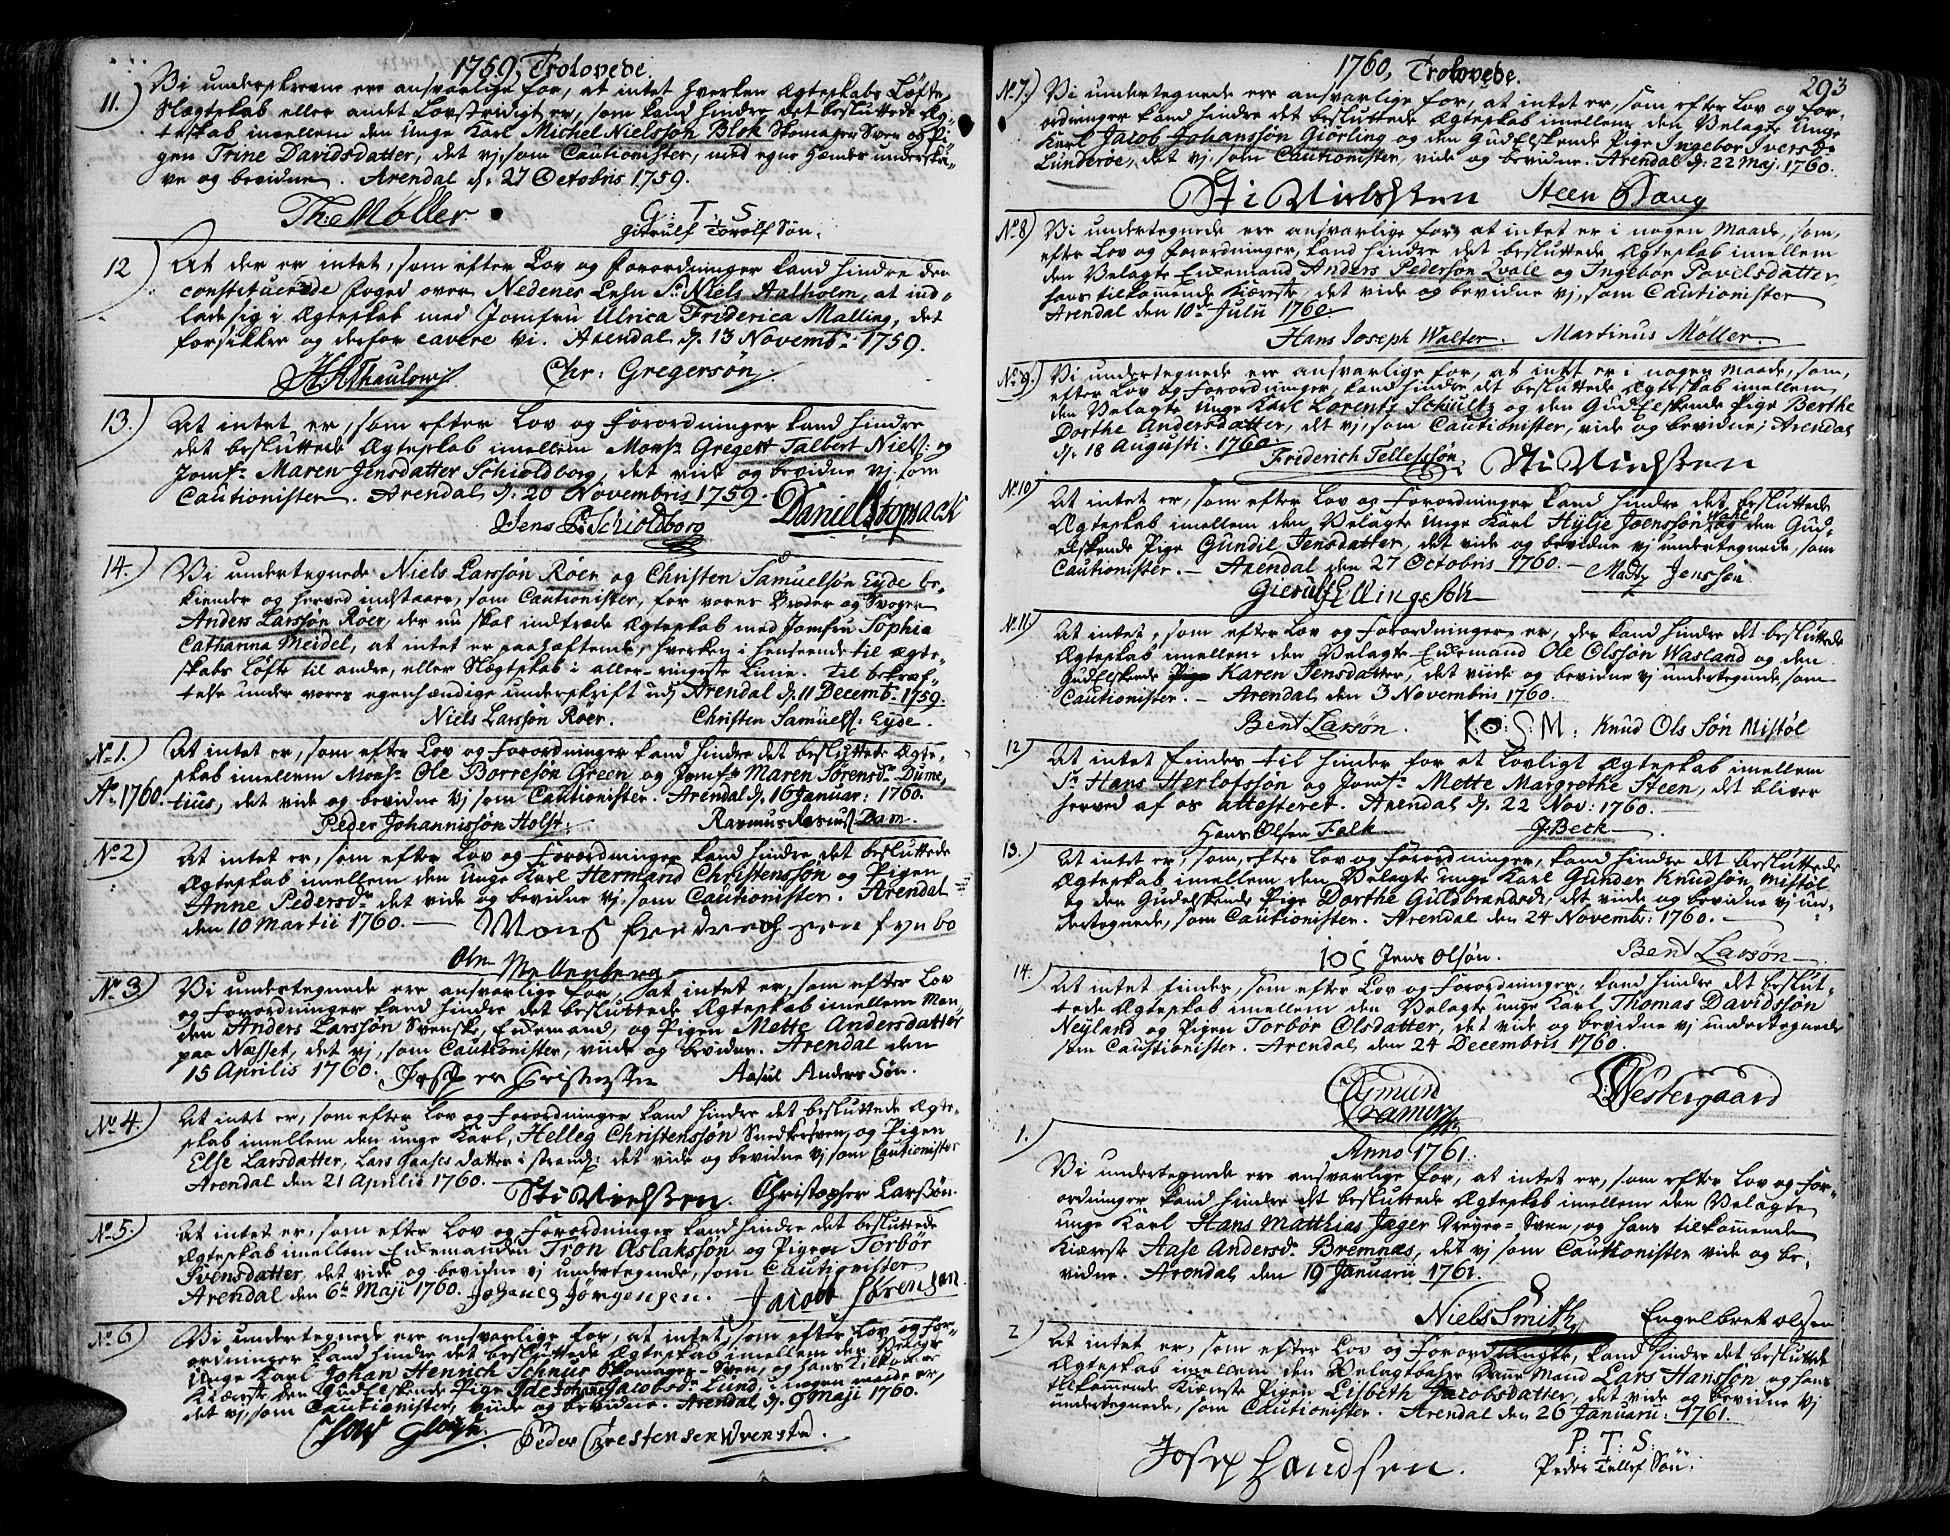 1759, Trolovede.
11.) Vi underskrevne ere ansvarlige for, at intet hverken Ægteskabs Løfte,
Slægtskab eller andet Lovstridigt er, som kand hindre det besluttede Æg-
teskab imellem den Unge Karl Michel Nielssøn Blok Skomager Svend og Pi-
gen Trine Davidsdatter, det vj, som Cautionister, med egne Hænder underskri-
ve og bevidne. Arendal d. 27 Octobris 1759.
Th: Møller. G. T. S.
Gierulf Torolf Søn.
12) At der er intet, som efter Lov og Forordninger kand hindre den
constituerede Foged over Nedenes Lehn Sr. Niels Aalholm, at ind-
lade sig i Ægteskab med Jomfru Ulrica Friderica Malling, det
forsikkre og derfor cavere vi. Arendal d. 13 Novembr. 1759.
HAThaulow Chr: Gregersøn
13.) At intet er, som efter Lov og Forordninger kand hindre
det besluttede Ægteskab imellem Monsr. Gregert Talbert Niels: og
Jomfr. Maren Jensdatter Schioldborg, det vide og bevidne vj som
Cautionister. Arendal d. 20 Novembris 1759.
Jens P: Schioldborg Daniel Stopsack
14.) Vi undertegnede Niels Larssøn Røer og Christen Samuelsøn Eyde be-
kiender og herved indstaaer, som Cautionister, for vores Broder og Svoger
Anders Larssøn Røer, der nu skal indtræde Ægteskab med Jomfru Sophia
Catharina Meidel, at intet er paahæftende, hverken i henseende til Ægte-
skabs Løfte til andre, eller Slægtskab i aller ringeste Linie. Til bekræf-
telse under vores egenhændige underskrift udj Arendal d. 11 Decembr. 1759.
Niels Larssøn Röer. Christen Samüels: Eyde.
No. 1.) At intet er, som efter Lov og Forordninger kand hindre det besluttede Ægte-
skab imellem Monsr. Ole Borresøn Green og Jomfr. Maren Sørensdr. Dume,
Ao. 1760. tius, det vide og bevidne vj som Cautionister. Arendal d. 16 Januar: 1760.
Peder Johannissøn Holst. Rasmus Dam.
No. 2) At intet er, som efter Lov og Forordninger kand hindre det besluttede
Ægteskab imellem den Unge Karl Hermand Christensøn og Pigen
Anne Pedersdr. det vide og bevidne vj, som Cautionister. Arendal
den 10 Martii 1760. Mons fynbo
Ole Mellenberg
No. 3) Vi undertegnede ere ansvarlige for, at intet er, som efter Lov
og Forordninger kand hindre det besluttede Ægteskab imellem Man,
den Anders Larssøn Svenske, Enkemand, og Pigen Mette Andersdatter
paa Næsset, det vj, som Cautionister, viide og bevidne. Arendal den
15 Aprilis 1760. Jesper Cristensen Aasul Anders Søn.
No. 4.) At intet er, som efter Lov og Forordninger kand hindre det besluttede Ægte-
skab imellem den unge Karl, Helleg Christenssøn Snedkersven, og Pigen
Else Larsdatter, Lars Haases datter i strand: det vide og bevidne vj som Cautionister
Arendal den 21 Aprilis 1760. Sti Nielssen. Christopher Larssøn.
No. 5.) At intet er, som efter Lov og Forordninger kand hindre det besluttede
Ægteskab imellem Enkemanden Tron Aslakssøn og Pigen Torbør
Svensdatter, det vide og bevidne vj undertegnede, som Cautionister
Arendal den 6te Maji 1760. Johanes Jørgensen. Jacob Sørensen
No. 6) Vi undertegnede ere ansvarlige for, at intet, som efter Lov og For-
ordninger kand hindre det besluttede Ægteskab imellem den Velagte
Unge Karl Johan Henrich Schnur Skomager-Sven, og hans tilkomende
Kiærste den Gudelskende Pige Ide Johanne Jacobsdr. Lund i nogen maade er,
det vj, som Cautionister, viide og bevidne. Arendal d. 9 Maji 1760.
Peder Crestensen
1760, Trolovede. 293
No. 7.) Vi undertegnede ere ansvarlige for, at intet er, som efter Lov og For-
ordninger kand hindre det besluttede Ægteskab imellem den Velagte Unge
Karl Jacob Johanssøn Giørling og den Gudelskende Pige Ingebor Iversdr.
Lunderøe, det vj, som Cautionister, vide og bevidne. Arendal d. 22 Maj. 1760.
Sti Nielssen Steen Daug
No. 8) Vi undertegnede ere ansvarlige for, at intet er i nogen Maade, som,
efter Lov og Forordninger, kand hindre det besluttede Ægteskab imellem
den Velagte Enkemand Anders Pedersøn Qvale og Ingebor Povelsdatter
hans tilkommende Kiæreste, det vide og bevidne vj, som Cautionister
Arendal den 10de Julii 1760.
Hans Joseph Walter. Martinus Møller.
No. 9.) Vi undertegnede ere ansvarlige for, at intet er i nogen Maade, som,
efter Lov og Forordninger, kand hindre det besluttede Ægteskab imellem
den Velagte Unge Karl Lorentz Schuultz og den Gudelskende Pige Berthe
Dorthe Andersdatter, det vj, som Cautionister, vide og bevidne; Arendal
d. 18 Augusti. 1760.
Friderich Tellefssøn. Sti Nielssen
No. 10) At intet er, som efter Lov og Forordninger kand hindre det besluttede
Ægteskab imellem den Velagte Unge Karl Hylje Joenssøn og den Gud-
elskende Pige Gundil Jensdatter, det vide og bevidne vj undertegnede, som
Cautionister. - Arendal den 27 Octobris 1760. - Madtz Jenssøn.
Gierulf Ellingsøn
No. 11) At intet, som efter Lov og Forordninger er, der kand hindre det besluttede
Ægteskab imellem den Velagte Enkemand Ole Olssøn Wasland og den
Gudelskende Pige Karen Jensdatter, det viide og bevidne vj undertegnede som
Cautionister. - Arendal den 3 Novembris 1760.
Bent Larsøn. K. O. S. M: Knud Ols Søn Mistøl
12) At intet findes til hinder for et Lovligt Ægteskab imellem
Sr. Hans Herlofssøn og Jomfr. Mette Margrethe Steen, det bliver
herved af os attesteret. Arendal d. 22 Nov: 1760.
Hans Olsen Falk J. Beck
13.) At intet er, som, efter Lov og Forordninger, kand hindre det besluttede
Ægteskab imellem den Velagte unge Karl Gunder Knudsøn Mistøl
og den Gudelskende Pige Dorthe Guldbrandsdr, det vide og bevidne vj un-
dertegnede, som Cautionister. Arendal den 24 Novembr: 1760.
I O S Jens Olsøn. Bent Larsøn
14.) At intet findes, som efter Lov og Forordninger, kand hindre det beslut-
tede Ægteskab imellem den Velagte unge Karl Thomas Davidssøn
Neyland og Pigen Torbør Olsdatter, det vide og bevidne vj undertegnede
som Cautionister. Arendal den 24 Decembris 1760.
Cramer Westergaard
1.) Anno 1761.
Vi undertegnede ere ansvarlige for, at intet er, som efter Lov og For-
ordninger kand hindre det besluttede Ægteskab imellem den Velagte
unge Karl Hans Matthias Jæger Dreyer-Sven, og hans tilkommende
Kiæreste Aase Andersdr. Bremnæs, det vj som Cautionister vide og be-
vidne. Arendal den 19 Januarii 1761.
Niels Smith Engelbret Olsen
2) At intet er, som efter Lov og Forordninger, kand hindre det besluttede
Ægteskab imellem den Velagtbahre Mand Lars Hanssøn og hans
tilkommende Kiæreste Pigen Lisbeth Jacobsdatter, det vide og bevidne vj
undertegnede, som Cautionister. Arendal den 26 Januarii. 1761.
P: T: S:
Josep Handsen. Peder Tellef Søn.